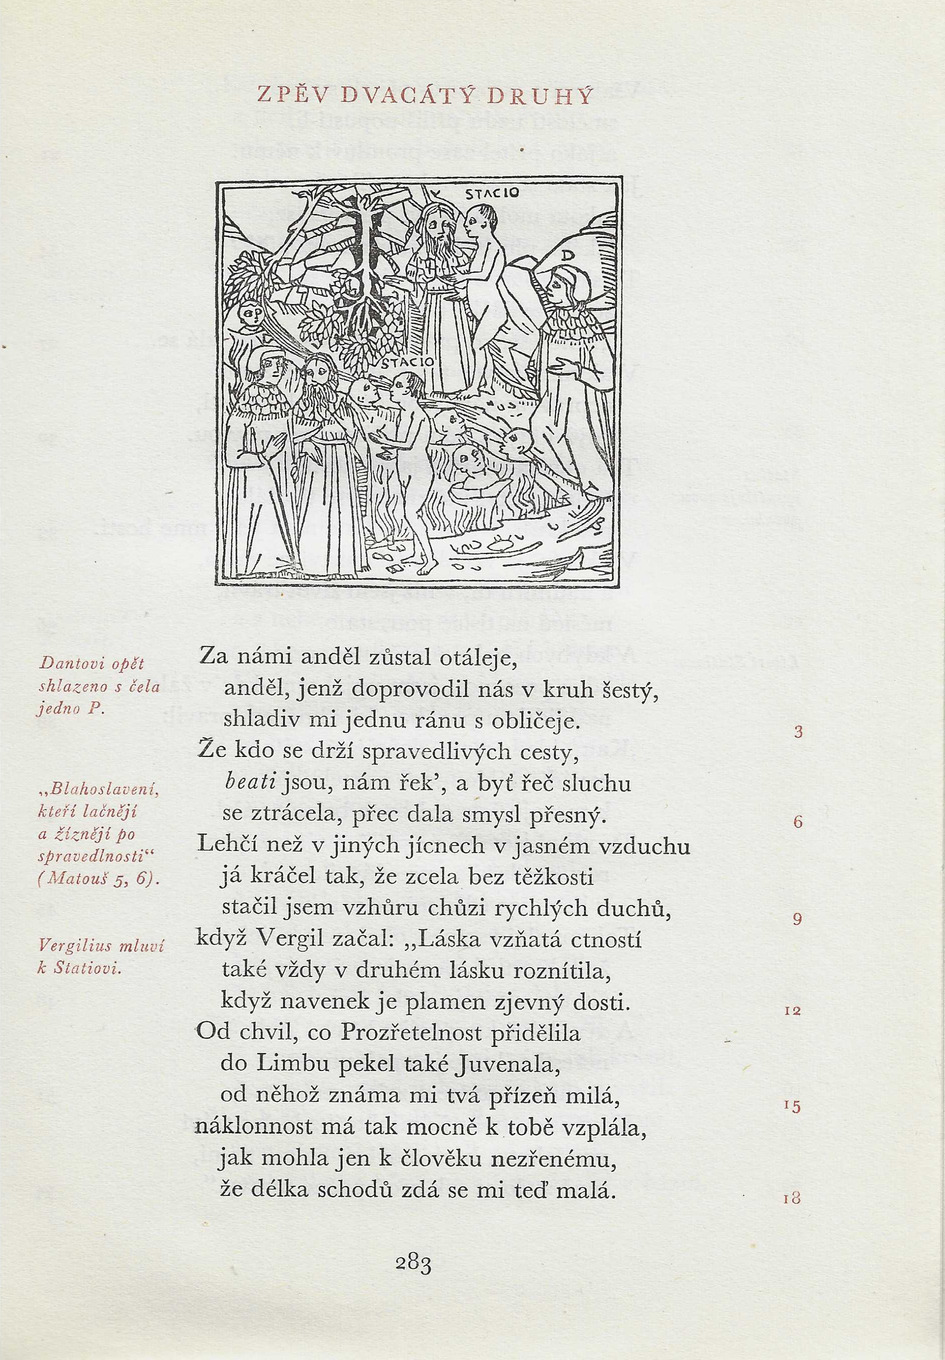 ZPĚV DVACÁTÝ DRUHÝ
STACIO
V
D
STACIO
Dantovi opět
shlazeno s čela
jedno P.
Za námi anděl zůstal otáleje,
anděl, jenž doprovodil nás v kruh šestý,
shladiv mi jednu ránu s obličeje.
3
Že kdo se drží spravedlivých cesty,
„Blahoslavení,
kteří lačnějí
a žíznějí po
spravedlnosti“
(Matouš 5, 6).
beati jsou, nám řek’, a byť řeč sluchu
se ztrácela, přec dala smysl přesný.
6
Lehčí než v jiných jícnech v jasném vzduchu
já kráčel tak, že zcela bez těžkosti
stačil jsem vzhůru chůzi rychlých duchů,
9
Vergilius mluví
k Statiovi.
když Vergil začal: „Láska vzňatá ctností
také vždy v druhém lásku roznítila,
když navenek je plamen zjevný dosti.
12
Od chvil, co Prozřetelnost přidělila
do Limbu pekel také Juvenala,
od něhož známa mi tvá přízeň milá,
15
náklonnost má tak mocně k tobě vzplála,
jak mohla jen k člověku nezřenému,
že délka schodů zdá se mi teď malá.
18
283